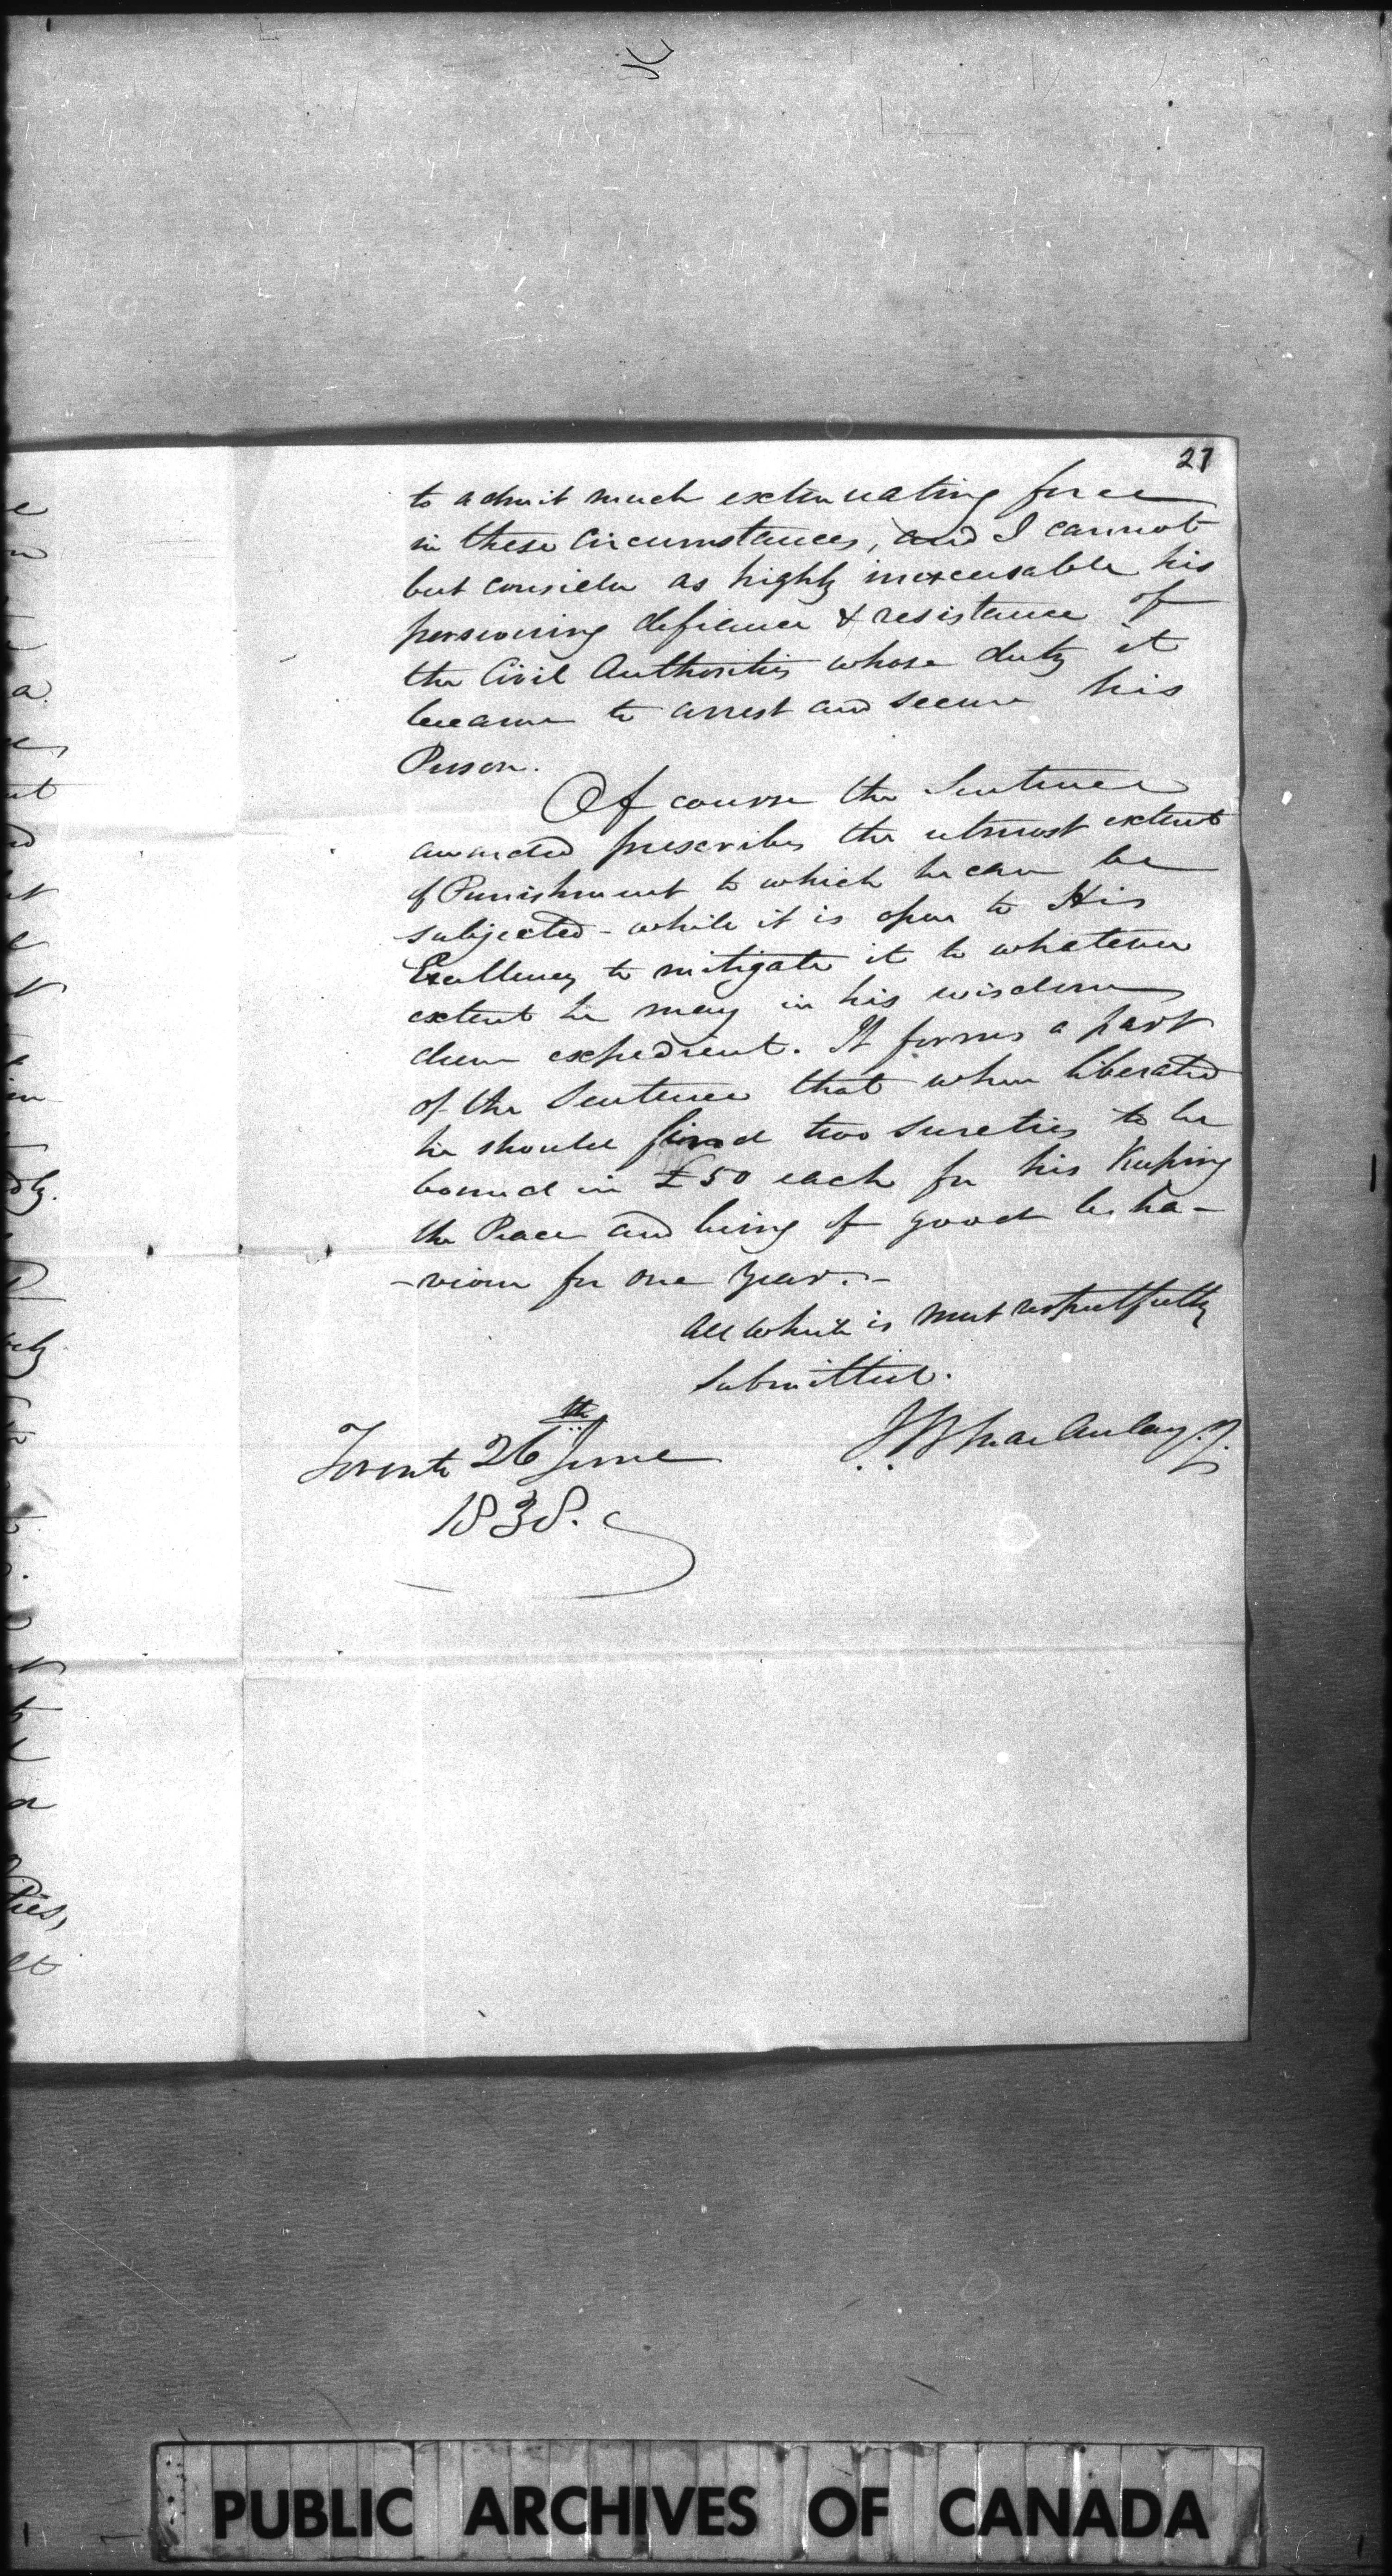 27
to admit much extenuating force
in these Circumstances, and I cannot
but consider as highly inexcusable his
persevering defiance & resistance of
the Civil Authorities whose duty it
became to arrest and secure his
Person.
Of course the Sentence
awarded prescribes the utmost extent
of Punishment to which he can be
subjected - while it is open to His
Excellency to mitigate it to whatever
extent he may in his wisdom
deem expedient. It forms a part
of the Sentence that when liberated
he should find two sureties to be
bound in £50 each for his Keeping
the Peace and being of good beha-
-viour for one year.-
All which is most respectfully
Submitted.
J B Macaulay. J.
Toronto 26th June
1838.
a
ut
dly.
ties,
PUBLIC ARCHIVES OF CANADA